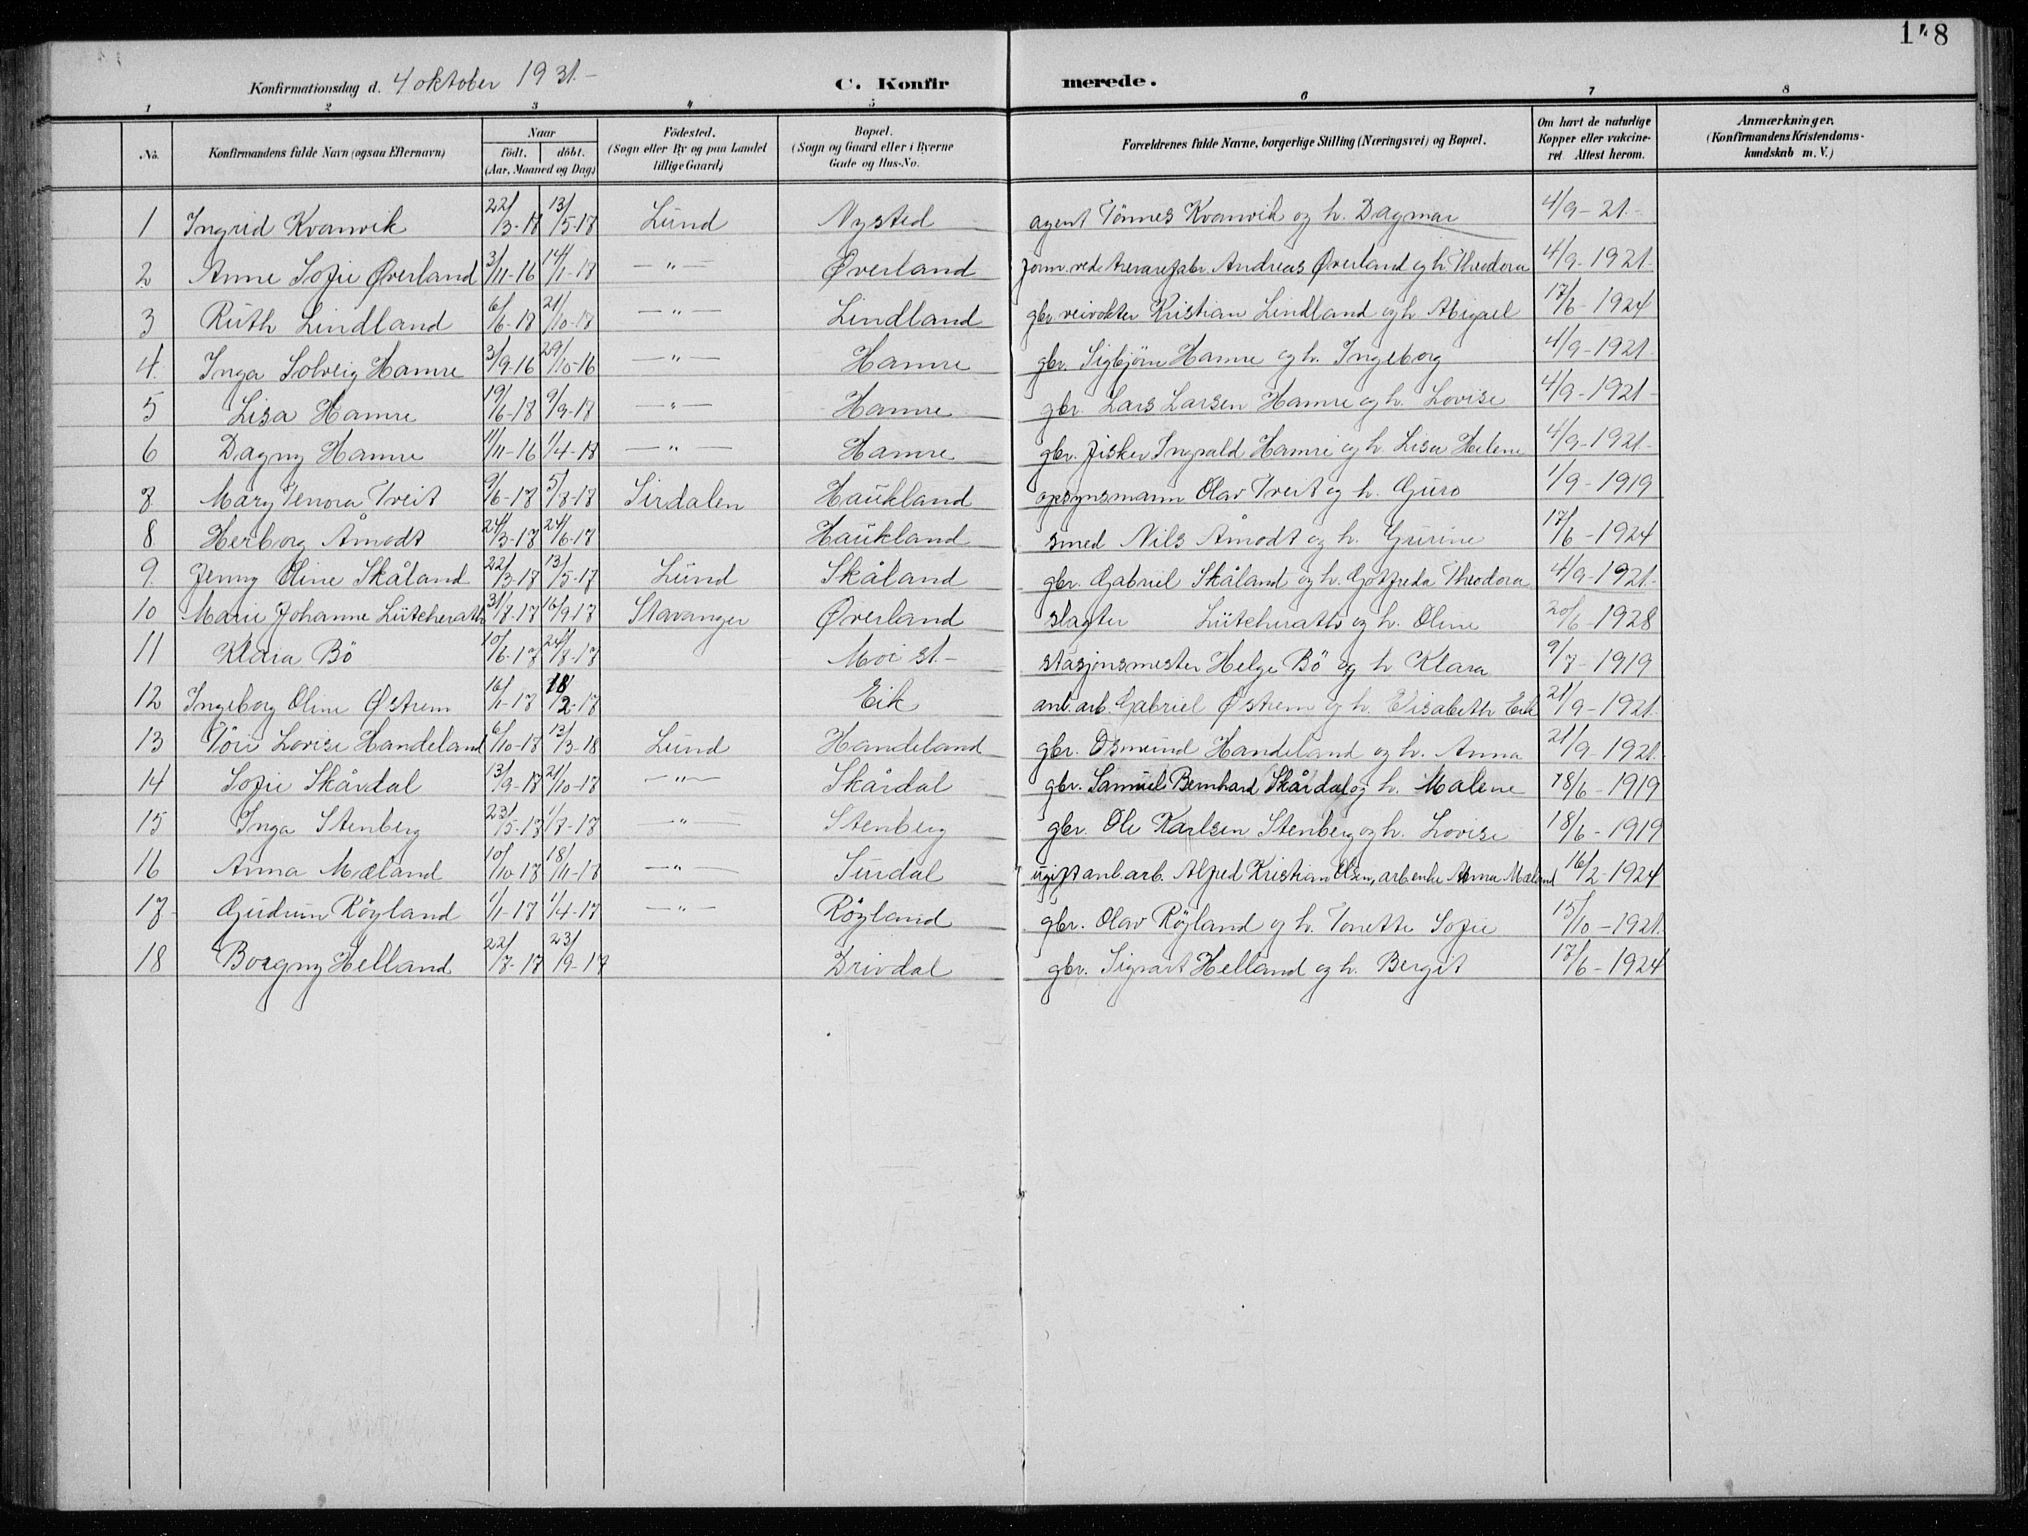 1 8
Konfirmationsdag d. 4 oktober 1931.-
C. Konfir merede.
1 2 3 4 5 6 7 8
No. Konfirmandens fulde Navn (ogsaa Efternavn) Naar født. døbt. (Aar, Maaned og Dag) Fødested. (Sogn eller By og paa Landet tillige Gaard) Bopæl. (Sogn og Gaard eller i Byerne Gade og Hus-No. Forældrenes fulde Navne, borgerlige Stilling (Næringsvei) og Bopæl. Om havt de naturlige Kopper eller vakcineret. Attest herom. Anmærkninger. (Konfirmandens Kristendomskundskab m. V.)
1 Ingrid Kvanvik 22/3-17 13/5-17 Lund Nysted agent Tönnes Kvanvik og h. Dagmar 4/9-21.-
2 Anne Sofie Øverland 3/11-16 14/1-17 —"— Øverland form. ved trevarefabr. Andreas Øverland og h. Theodora 4/9-1921.
3 Ruth Lindland 6/6-17 21/10-17 —"— Lindland gbr. veivokter Kristian Lindland og h. Abigael 17/6-1924
4. Inga Solveig Hamre 3/9-16 29/10-16 —"— Hamre gbr. Sigbjörn Hamre og h. Ingeborg 4/9-1921.
5 Lisa Hamre 19/6-17 9/9-17 —"— Hamre gbr. Lars Larsen Hamre og h. Lovise 4/9-1921-
6 Dagny Hamre 11/11-16 1/4-17 —"— Hamre gbr. fisker Ingvald Hamre og h. Lisa Helene 4/9-1921.-
7. Mary Tenora Tveit 9/6-17 5/8-17 Sirdalen Haukland opsynsmann Olav Tveit og h. Guro 1/9-1919
8. Herborg Åmodt 24/3-17 24/6-17 Haukland smed Nils Åmodt og h. Gurine 17/6-1924
9. Jenny Oline Skåland 22/3-17 13/5-17 Lund Skåland gbr. Gabriel Skåland og h. Gotfreda Theodora 4/9-1921.
10 Marie Johanne Lütcherath 31/7-17 16/9-17 Stavanger Øverland slagter Lütcherath og h. Oline 20/6-1928
11 Klara Bö 10/6-17 24/7-17 Moi st.- stasjonsmester Helge Bö og h. Klara 9/7-1919
12 Ingeborg Oline Østrem 16/1-17 18/2-17 Eik anl. arb. Gabriel Østrem og h. Elisabeth Eik 21/9-1921.
13 Töri Lovise Handeland 6/10-17 13/3-18 Lund Handeland gbr. Osmund Handeland og h. Anna 21/9-1921.
14 Sofie Skårdal 13/9-17 21/10-17 —"— Skårdal gbr. Samuel Bernhard Skårdal og h. Malene 18/6-1919
15 Inga Stenberg 23/5-17 1/7-17 —"— Stenberg gbr. Ole Karlsen Stenberg og h. Lovise 18/6-1919
16 Anna Mæland 10/10-17 18/11-17 —"— Surdal ugift anl. arb. Alfred Kristian Olsen, arb. enke Anna Mæland 16/2-1924
17. Gudrun Röyland 1/1-17 1/4-17 —"— Röyland gbr. Olav Röyland og h. Tonette Sofie 15/10-1921.
18 Borgny Helland 22/7-17 23/9-17 Drivdal gbr. Sigvart Helland og h. Bergit 17/6-1924